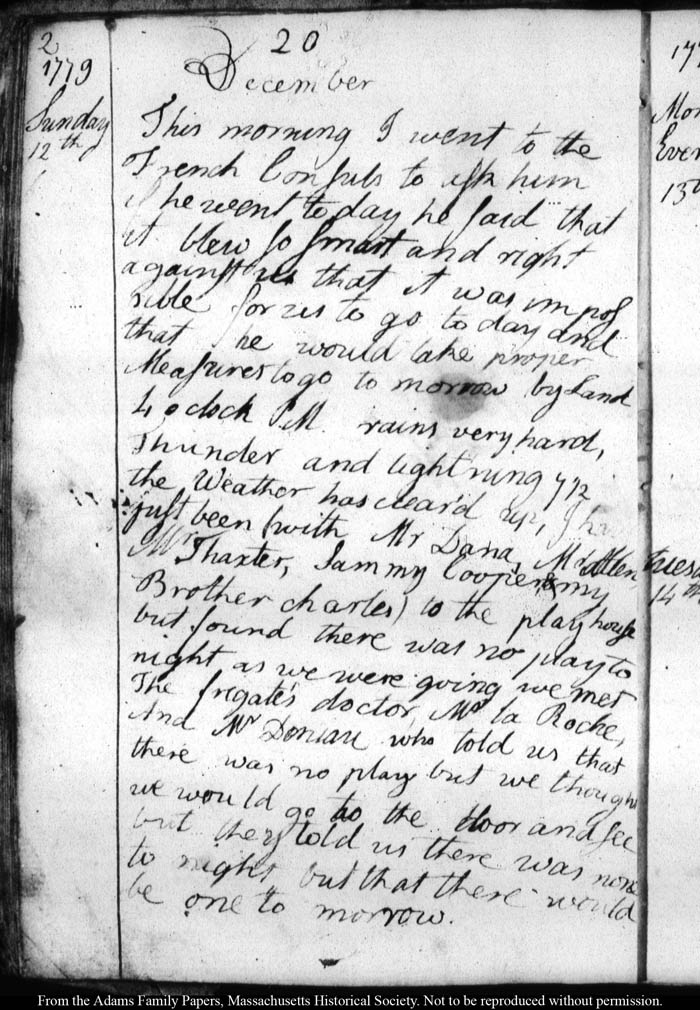 2
20
1779
December
Sunday
12th
This morning I went to the
French Consuls to ask him
if he went to day he said that
it blew so smart and right
against us that it was impos
sible for us to go to day and
that he would take proper
Measures to go to morrow by Land
4 oclock PM. rains very hard,
Thunder and lightning 7 1/2
the Weather has clear'd up, I
just been (with Mr Dana, Mr Allen
Mr Thaxter, Sammy Cooper & my
Brother charles) to the playhouse
but found there was no play to
night as we were going we met
The frigate's doctor, Mr la Roche,
And Mr Deniau who told us that
there was no play but we thought
we would go to the door and see
but they told us there was none
to night but that there would
be one to morrow.
177
Mon
Even
13th
Tuesd
14th
From the Adams Family Papers, Massachusetts Historical Society. Not to be reproduced without permission.